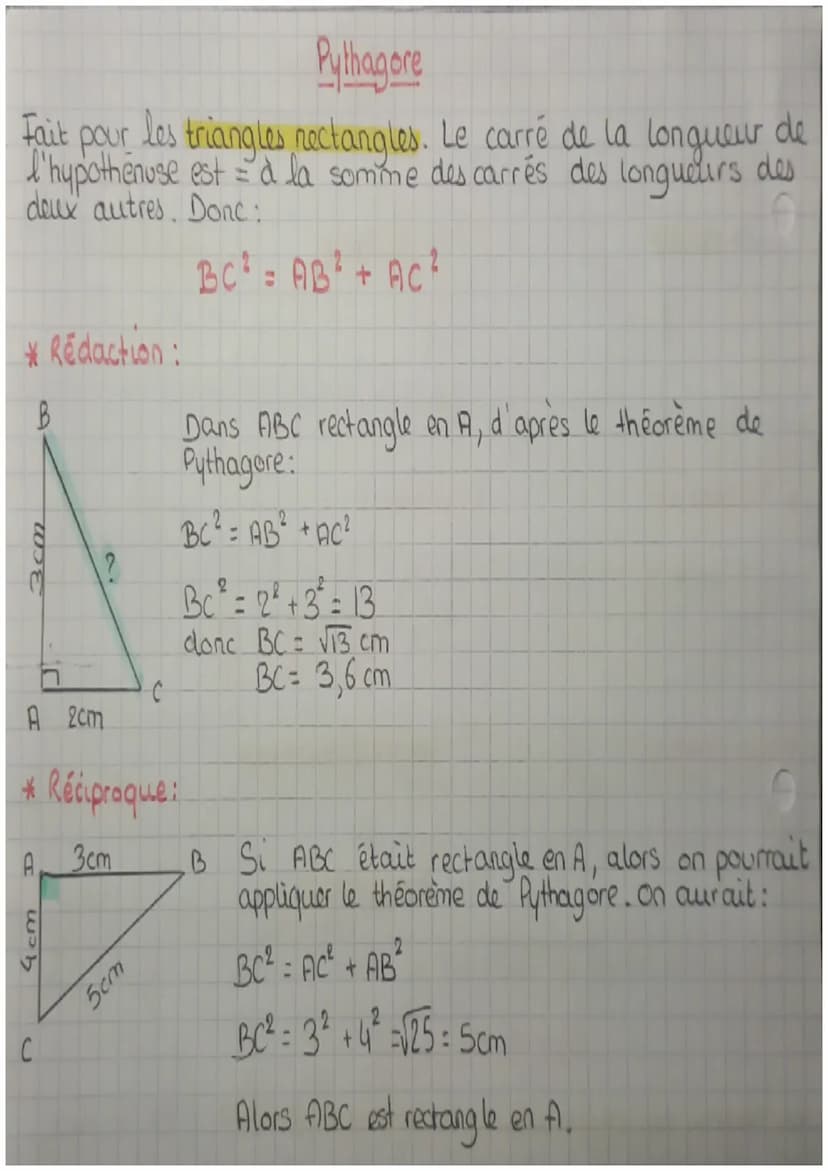 Pythagore
Fait pour les triangles rectangles. Le carré de la longueur de
l'hypothénuse est = à la somme des carrés des longueurs des
deux autres. Donc :
BC² = AB² + AC²
* Rédaction :
B
Dans ABC rectangle en A, d'après le théorème de
Pythagore :
BC² = AB² + AC²
3cm
?
BC² = 2² + 3² = 13
donc BC = √13 cm
BC = 3,6 cm
C
A 2cm
* Réciproque :
A 3cm B
Si ABC était rectangle en A, alors on pourrait
appliquer le théorème de Pythagore. On aurait :
4cm
5cm
BC² = AC² + AB²
BC² = 3² + 4² = √25 = 5cm
C
Alors ABC est rectangle en A.